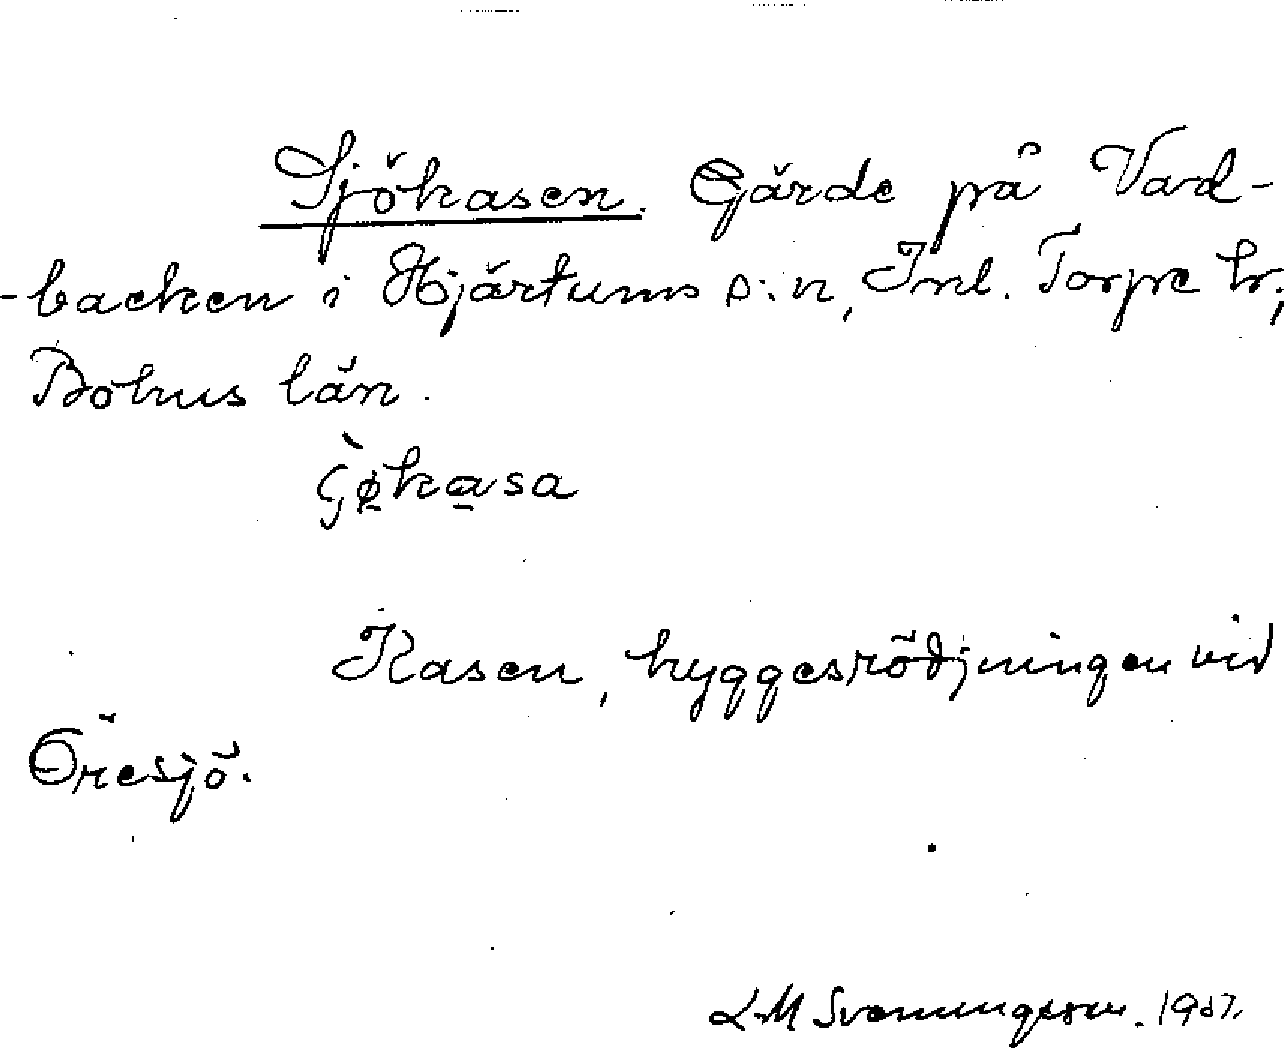 Sjökasen. Gärde på Vad-
-backen i Hjärtums s:n, Inl. Torpe hr,
Bohus län.
Kasen, hyggesrödjningen vid
Öresjö.
L M Svenungsson.